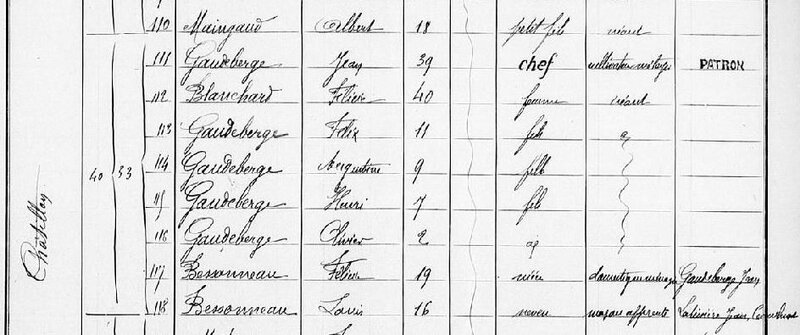 110 Maingaud Albert 18 petit fils néant
111 Gaudeberge Jean 39 chef cultivateur métayer PATRON
112 Blanchard Félicie 40 femme néant
113 Gaudeberge Félix 11 fils
114 Gaudeberge 9 fille
115 Gaudeberge Henri 7 fils
116 Gaudeberge Olivier 2
40 33
Chatillon
117 Bessonneau Félicie 19 nièce domestique Gaudeberge Jean
118 Bessonneau Louis 16 neveu maçon Jean